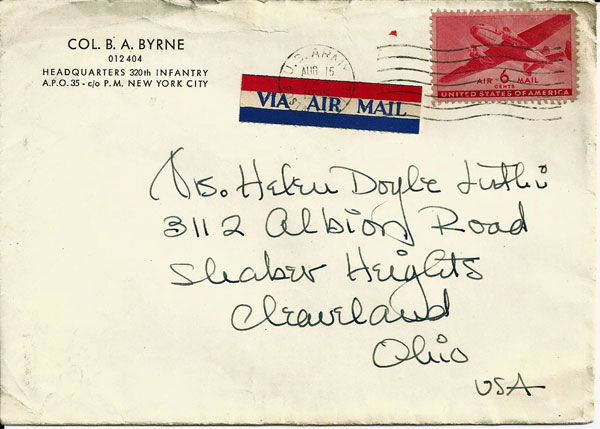 COL. B. A. BYRNE
012404
HEADQUARTERS 320th INFANTRY
A.P.O. 35 - c/o P.M. NEW YORK CITY
U.S. ARMY
AUG 15
VIA AIR MAIL
AIR 6 MAIL
CENTS
UNITED STATES OF AMERICA
Helen Doyle
3112 Albion Road
Shaker Heights
Cleaveland
Ohio
USA